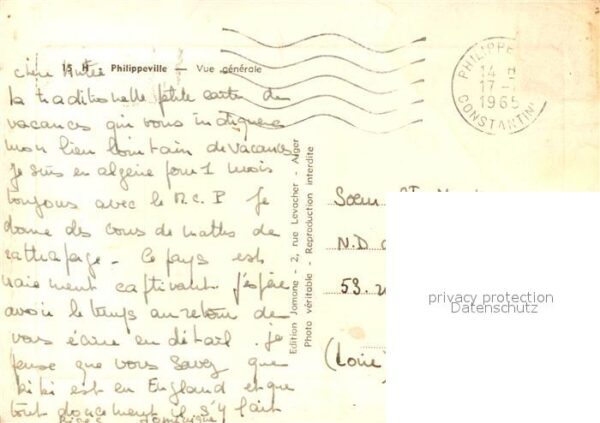 15 H Philippeville — Vue générale
chère
la traditionnelle ptite carte de
vacances qui vous indiquera
mon lieu lointain de vacances
Je suis en algérie pour 1 mois
toujours avec le M.C.P Je
donne des cours de maths de
rattrapage - Ce pays est
vraiement captivant j'espère
avoir le temps au retour de
vous écrire en détail. je
pense que vous savez que
kiki est en England et que
tout doucement il s'y fait
Bises Dominique
Edition Jomone - 2, rue Levacher - Alger
Photo véritable - Reproduction interdite
PHILIPPE
14 H
17 -
1965
CONSTANTIN
Soeur St
N.D
53.
(Loire)
privacy protection
Datenschutz